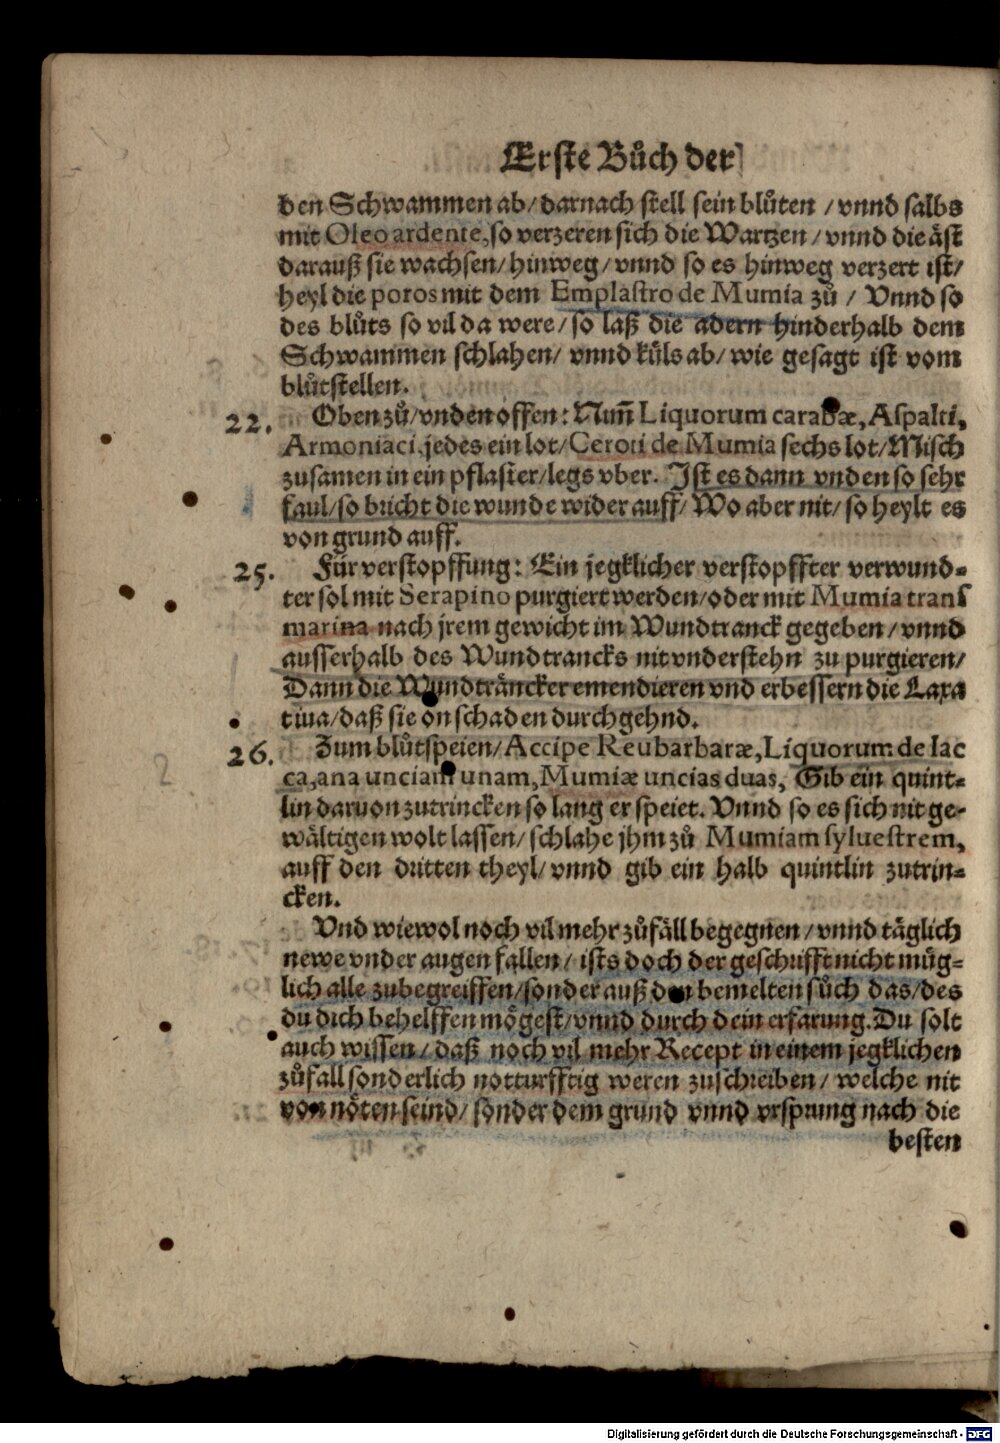 Erste Bůch der
den Schwammen ab/ darnach stell sein blůten / vnnd salbs
mit Oleo ardente, so verzeren sich die Wartzen / vnnd die äst
darauß sie wachsen/ hinweg/ vnnd so es hinweg verzert ist/
heyl die poros mit dem Emplastro de Mumia zů / Vnnd so
des blůts so vil da were/ so laß die adern hinderhalb dem
Schwammen schlahen/ vnnd küls ab/ wie gesagt ist vom
blůtstellen.
22. Oben zů/ vnden offen: Nim̃ Liquorum carabæ, Aspalti,
Armoniaci, jedes ein lot/ Ceroti de Mumia sechs lot/ Misch
zusamen in ein pflaster/ legs vber. Ist es dann vnden so sehr
faul/ so bricht die wunde wider auff/ Wo aber nit/ so heylt es
von grund auff.
25. Für verstopffung: Ein jegklicher verstopffter verwund-
ter sol mit Serapino purgiert werden/ oder mit Mumia trans
marina nach jrem gewicht im Wundtranck gegeben / vnnd
ausserhalb des Wundtrancks nit vnderstehn zu purgieren/
Dann die Wundträncker emendieren vnd erbessern die Laxa
tiua/ daß sie on schaden durchgehnd.
26. Zum blůtspeien/ Accipe Reubarbaræ, Liquorum de lac
ca, ana unciam unam, Mumiæ uncias duas, Gib ein quint-
lin daruon zutrincken so lang er speiet. Vnnd so es sich nit ge-
wältigen wolt lassen/ schlahe jhm zů Mumiam syluestrem,
auff den dritten theyl/ vnnd gib ein halb quintlin zutrin-
cken.
Vnd wiewol noch vil mehr zůfäll begegnen / vnnd täglich
newe vnder augen fallen / ists doch der geschrifft nicht müg-
lich alle zubegreiffen/ sonder auß den bemelten sůch das/ des
du dich behelffen mögest/ vnnd durch dein erfarung. Du solt
auch wissen / daß noch vil mehr Recept in einem jegklichen
zůfall sonderlich notturfftig weren zuschreiben / welche nit
von nöten seind/ sonder dem grund vnnd vrsprung nach die
besten
Digitalisierung gefördert durch die Deutsche Forschungsgemeinschaft - DFG